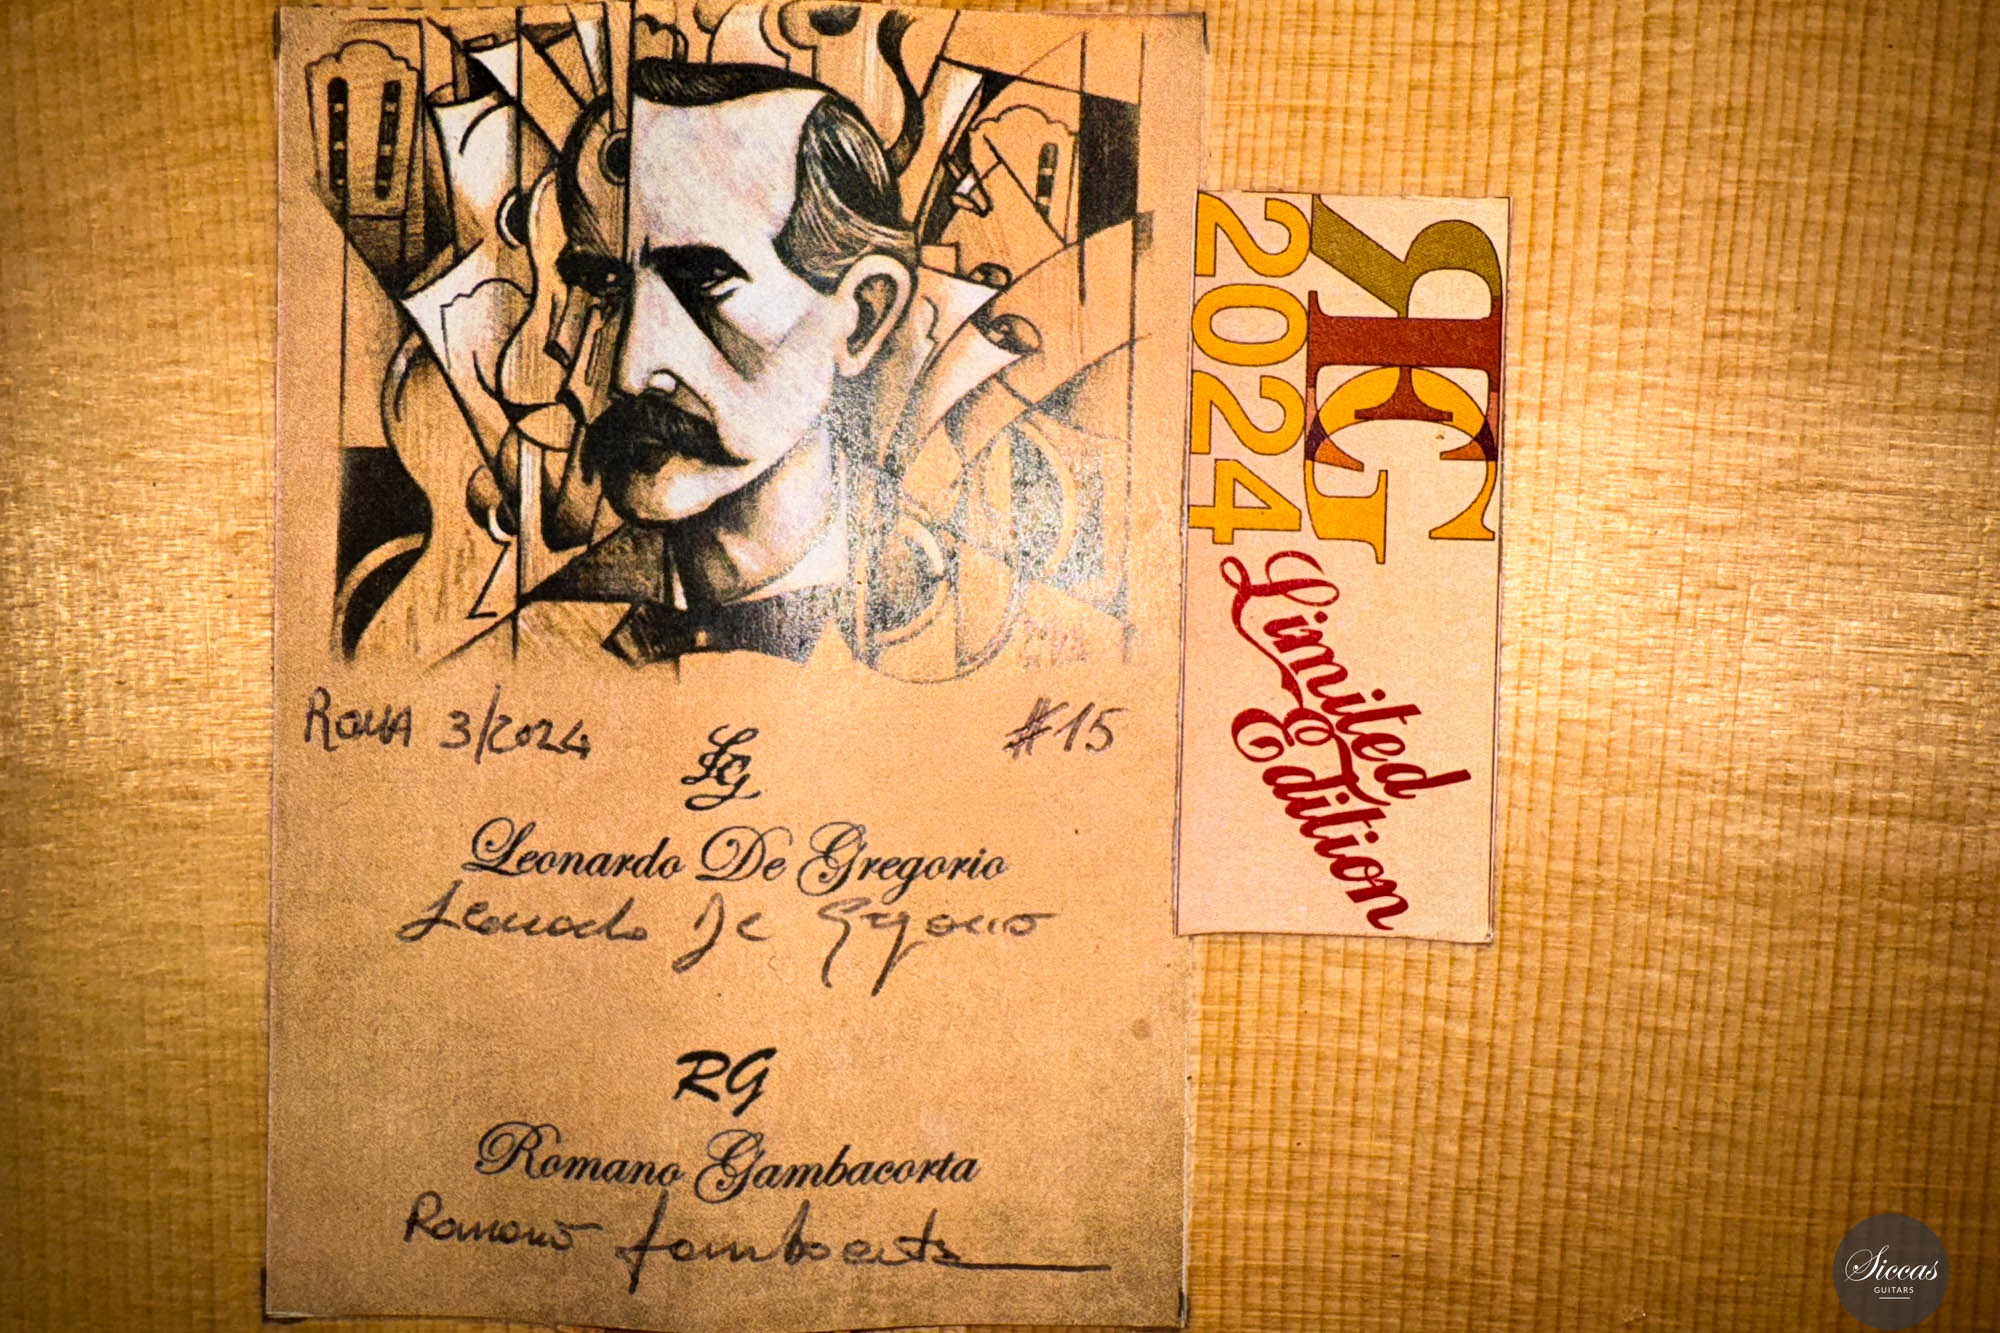 Roma 3/2024
#15
LG
Leonardo De Gregorio
Leonardo De Gregorio
RG
Romano Gambacorta
Romano Gambacorta
RG
2024
Limited
Edition
Siccas
GUITARS